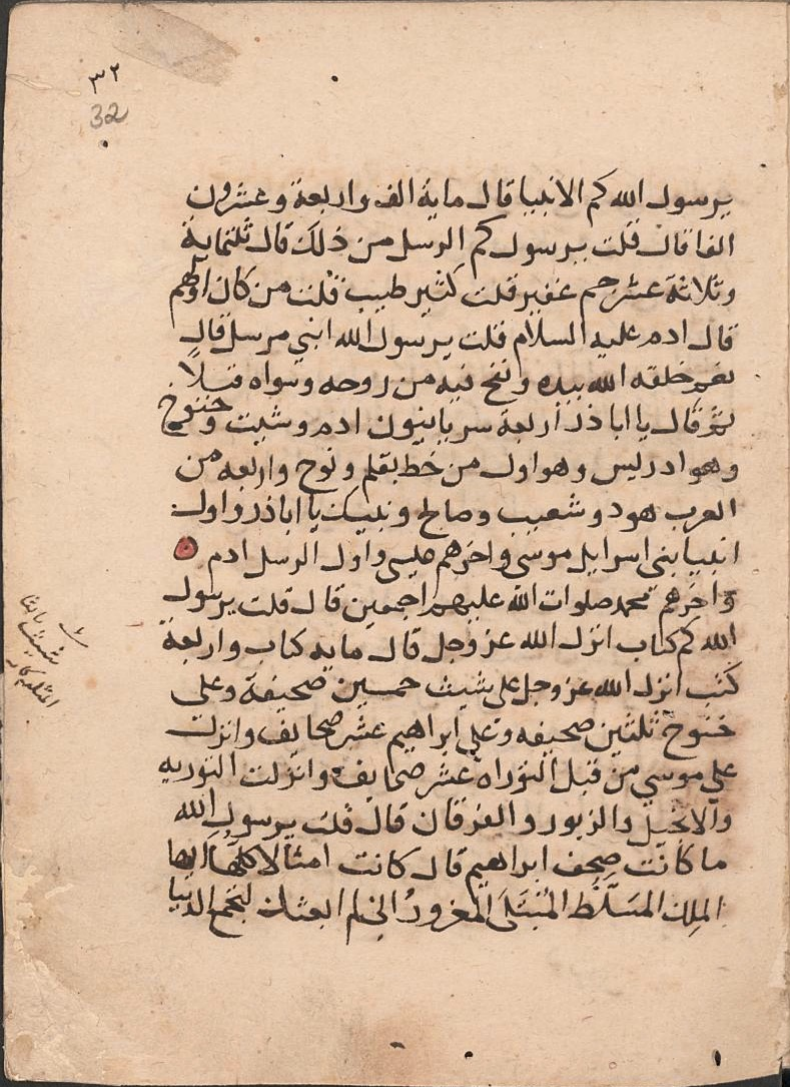 ٣٢
32
يرسول الله كم الانبيا قال ماية الف واربعة وعشرون
الفا قال قلت يرسول كم الرسل من ذلك قال ثلثماية
وثلاثة عشر جم غفير قلت كثير طيب قلت من كان اولهم
قال ادم عليه السلام قلت يرسول الله ابني مرسل قال
نعم خلقه الله بيده ونفخ فيه من روحه وسواه قبلا
ثم قال يا اباذر اربعة سريانيون ادم وشيت وخنوخ
وهو ادريس وهو اول من خط بقلم ونوح واربعه من
العرب هود وشعيب وصالح ونبيك يا اباذر واول
انبيا بنى اسرايل موسى واخرهم عيسى واول الرسل ادم
واخرهم محمد صلوات الله عليهم اجمعين قال قلت يرسول
الله كم كتاب انزل الله عز وجل قال مايه كتاب واربعة
كتب انزل الله عز وجل على شيث خمسين صحيفة وعلى
خنوخ ثلثين صحيفه وعلى ابراهيم عشر صحايف وانزلت
على موسي من قبل التوراه عشر صحايف وانزلت التوريه
والانجيل والزبور والفرقان قال قلت يرسول الله
ما كانت صحف ابراهيم قال كانت امثالا كلها ايها
الملك المسلط المبتلى المغرور انى لم ابعثك لتجمع الدنيا